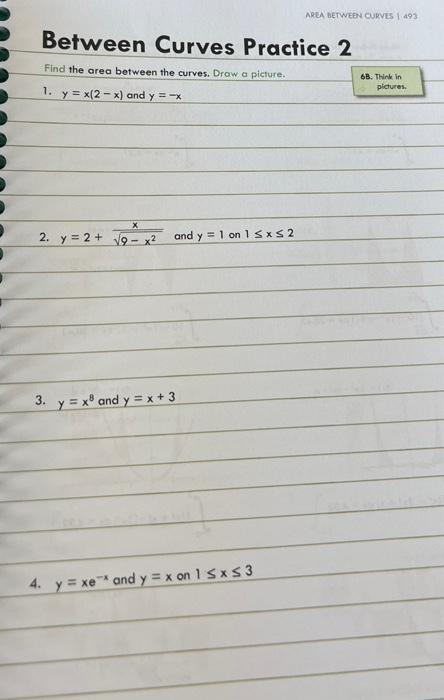 AREA BETWEEN CURVES | 493
Between Curves Practice 2
Find the area between the curves. Draw a picture.
6B. Think in
pictures.
1. y = x(2 − x) and y = −x
2. y = 2 + x/√(9 − x²) and y = 1 on 1 ≤ x ≤ 2
3. y = x⁸ and y = x + 3
4. y = xe⁻ˣ and y = x on 1 ≤ x ≤ 3